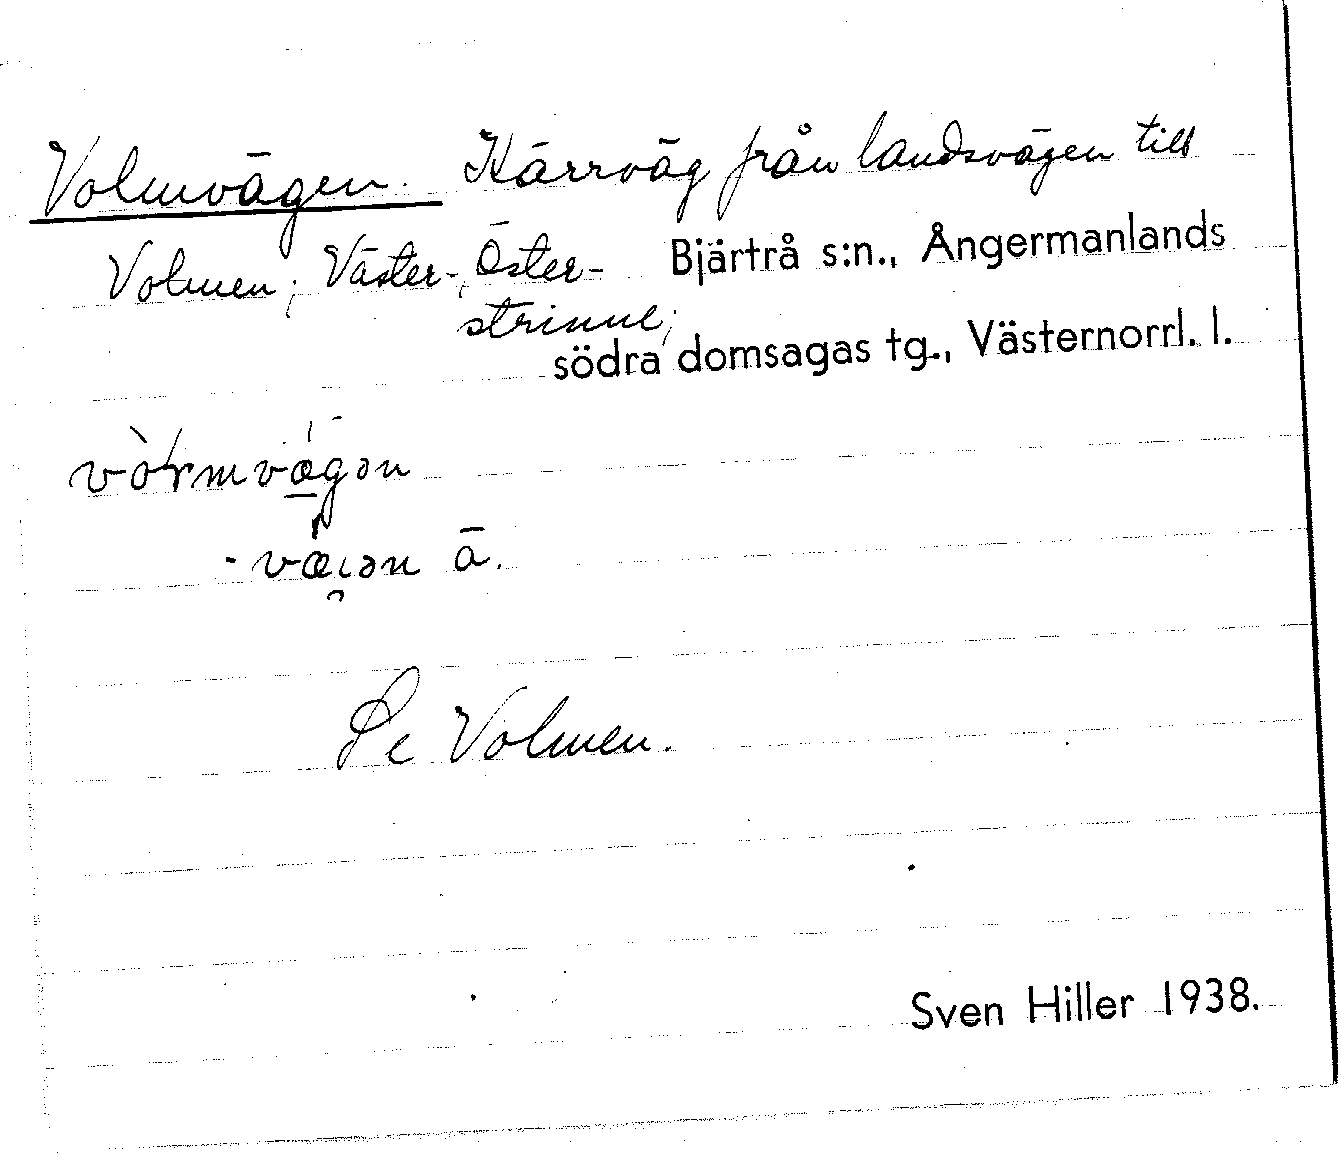 Volmvägen. Kärrväg från landsvägen till
Volmen; Väster-, Öster- Bjärtrå s:n., Ångermanlands
strinne; södra domsagas tg., Västernorrl. l.
-
ä.
Se Volmen.
Sven Hiller 1938.